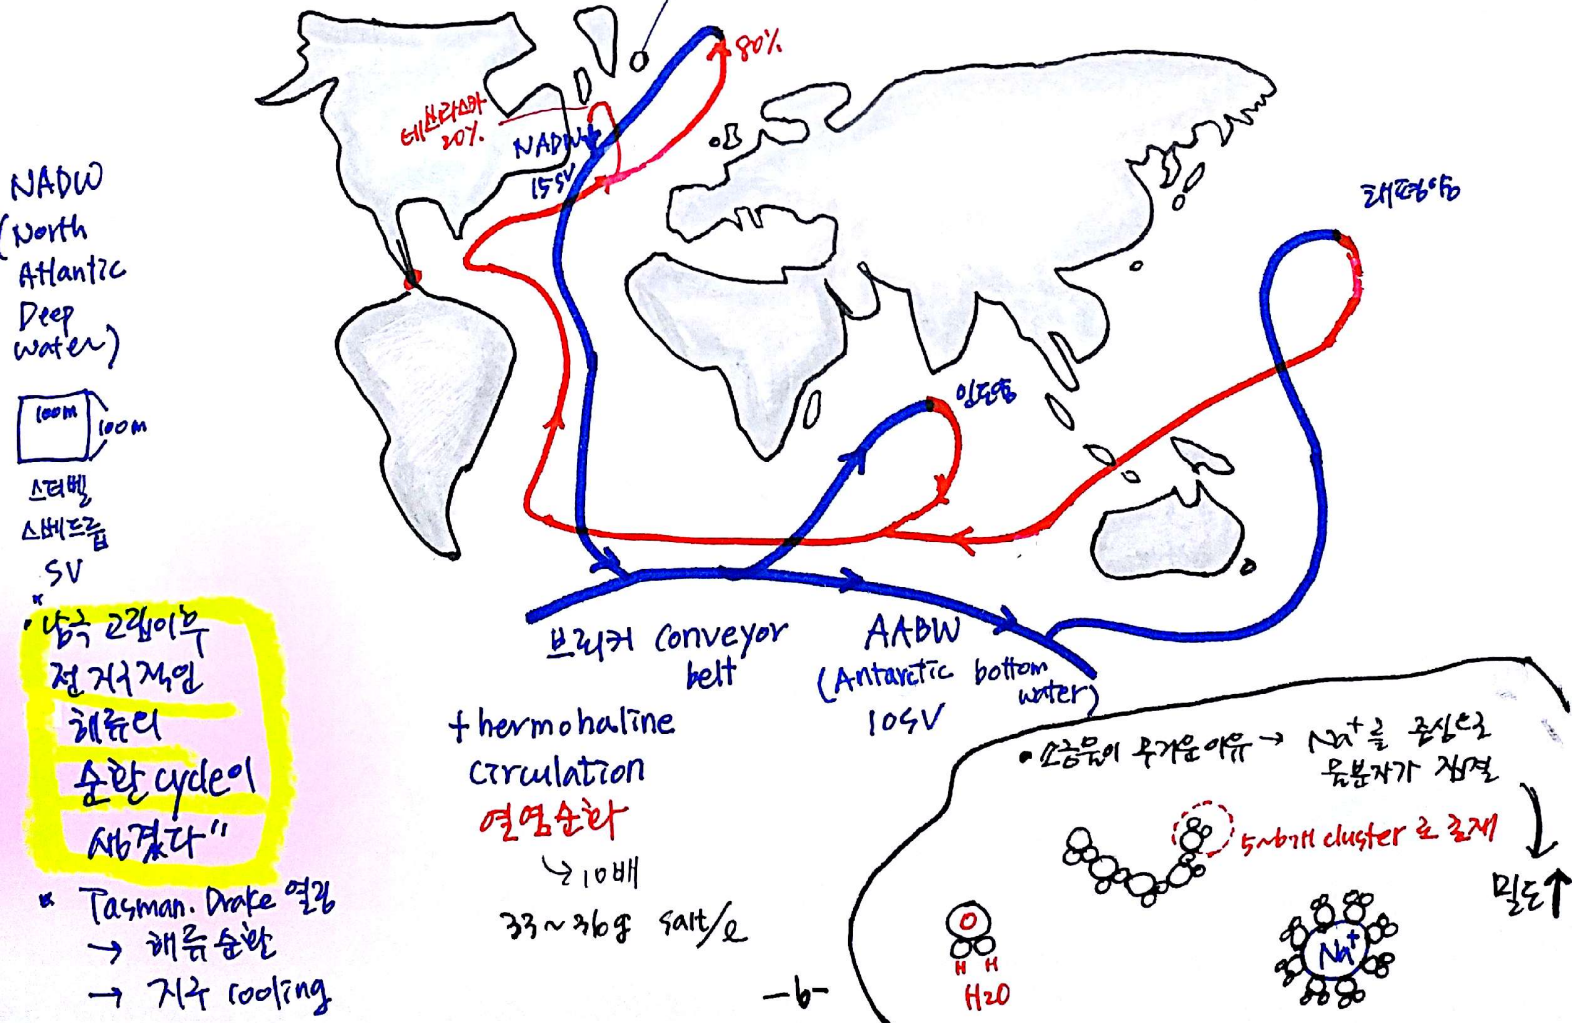 80%
20%.
NADW
15SV
NADW
(North
Atlantic
Deep
water)
태평양
인도양
100m
100m
스터벨
스베드룹
SV
"남극 고립이후
전 지구적인
해류의
순환 cycle이
생겼다"
* Tasman. Drake 열림
→ 해류순환
→ 지구 cooling
브뢰커 conveyor
belt
AABW
(Antarctic bottom
water)
10SV
thermohaline
circulation
열염순환
↳ 10배
33~36g salt/ℓ
-6-
• 소금물이 무거운 이유 → Na⁺를 중심으로
물분자가 집결
5~6개 cluster로 존재
밀도↑
O
H H
H2O
Na⁺